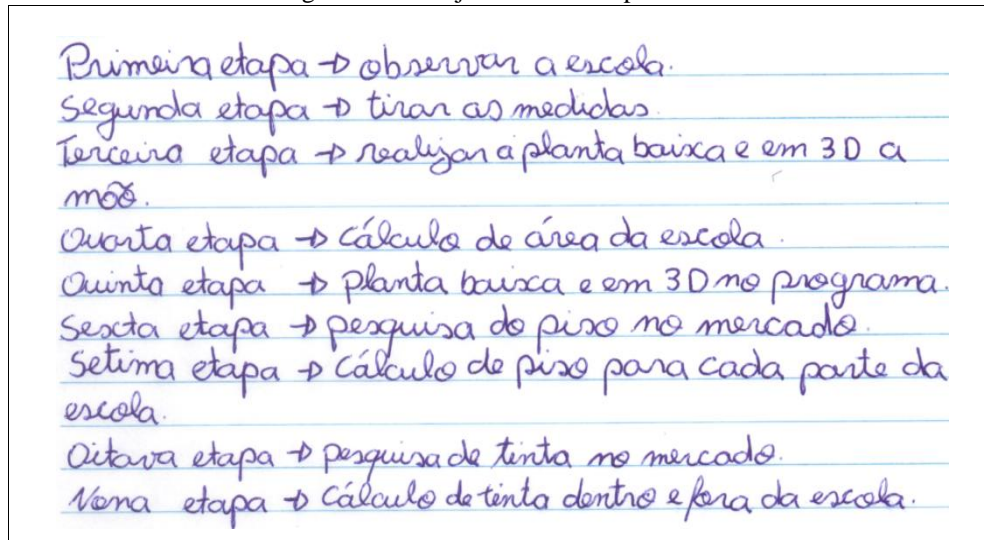 Primeira etapa → observar a escola.
Segunda etapa → tirar as medidas.
Terceira etapa → realizar a planta baixa e em 3D a
mão.
Quarta etapa → Cálculo de área da escola.
Quinta etapa → planta baixa e em 3D no programa.
Sexta etapa → pesquisa do piso no mercado.
Setima etapa → Cálculo de piso para cada parte da
escola.
Oitava etapa → pesquisa de tinta no mercado.
Nona etapa → Cálculo de tinta dentro e fora da escola.